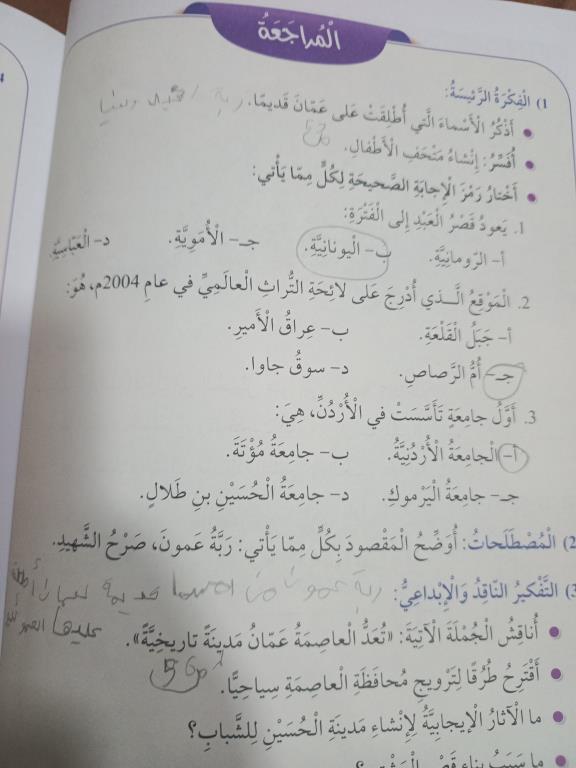 الْمُراجَعَةُ
1) الْفِكْرَةُ الرَّئيسَةُ:
• أَذْكُرُ الْأَسْماءَ الَّتي أُطْلِقَتْ عَلى عَمّانَ قَديمًا. ربة
• أُفَسِّرُ: إِنْشاءُ مَتْحَفِ الْأَطْفالِ. 56
• أَخْتارُ رَمْزَ الْإِجابَةِ الصَّحيحَةِ لِكُلٍّ مِمّا يَأْتي:
1. يَعودُ قَصْرُ الْعَبْدِ إِلى الْفَتْرَةِ:
أ- الرّومانِيَّةِ. ب- الْيونانِيَّةِ. جـ- الْأُمَوِيَّةِ. د- الْعَبّاسِيَّةِ.
2. الْمَوْقِعُ الَّـــذي أُدْرِجَ عَلى لائِحَةِ التُّراثِ الْعالَمِيِّ في عامِ 2004م، هُوَ:
أ- جَبَلُ الْقَلْعَةِ. ب- عِراقُ الْأَميرِ.
جـ- أُمُّ الرَّصاصِ. د- سوقُ جاوا.
3. أَوَّلُ جامِعَةٍ تَأَسَّسَتْ في الْأُرْدُنِّ، هِيَ:
أ- الْجامِعَةُ الْأُرْدُنِيَّةُ. ب- جامِعَةُ مُؤْتَةَ.
جـ- جامِعَةُ الْيَرْموكِ. د- جامِعَةُ الْحُسَيْنِ بنِ طَلالٍ.
2) الْمُصْطَلَحاتُ: أُوَضِّحُ الْمَقْصودَ بِكُلٍّ مِمّا يَأْتي: رَبَّةُ عَمونَ، صَرْحُ الشَّهيدِ.
ربة عمون من اسما قديمة لعمان
3) التَّفْكيرُ النّاقِدُ وَالْإِبْداعِيُّ:
عليها
• أُناقِشُ الْجُمْلَةَ الْآتِيَةَ: «تُعَدُّ الْعاصِمَةُ عَمّانُ مَدينَةً تاريخِيَّةً».
56
• أَقْتَرِحُ طُرُقًا لِتَرْويجِ مُحافَظَةِ الْعاصِمَةِ سِياحِيًّا.
• ما الْآثارُ الْإيجابِيَّةُ لِإِنْشاءِ مَدينَةِ الْحُسَيْنِ لِلشَّبابِ؟
• ما سَبَبُ بِناءِ قَصْرِ